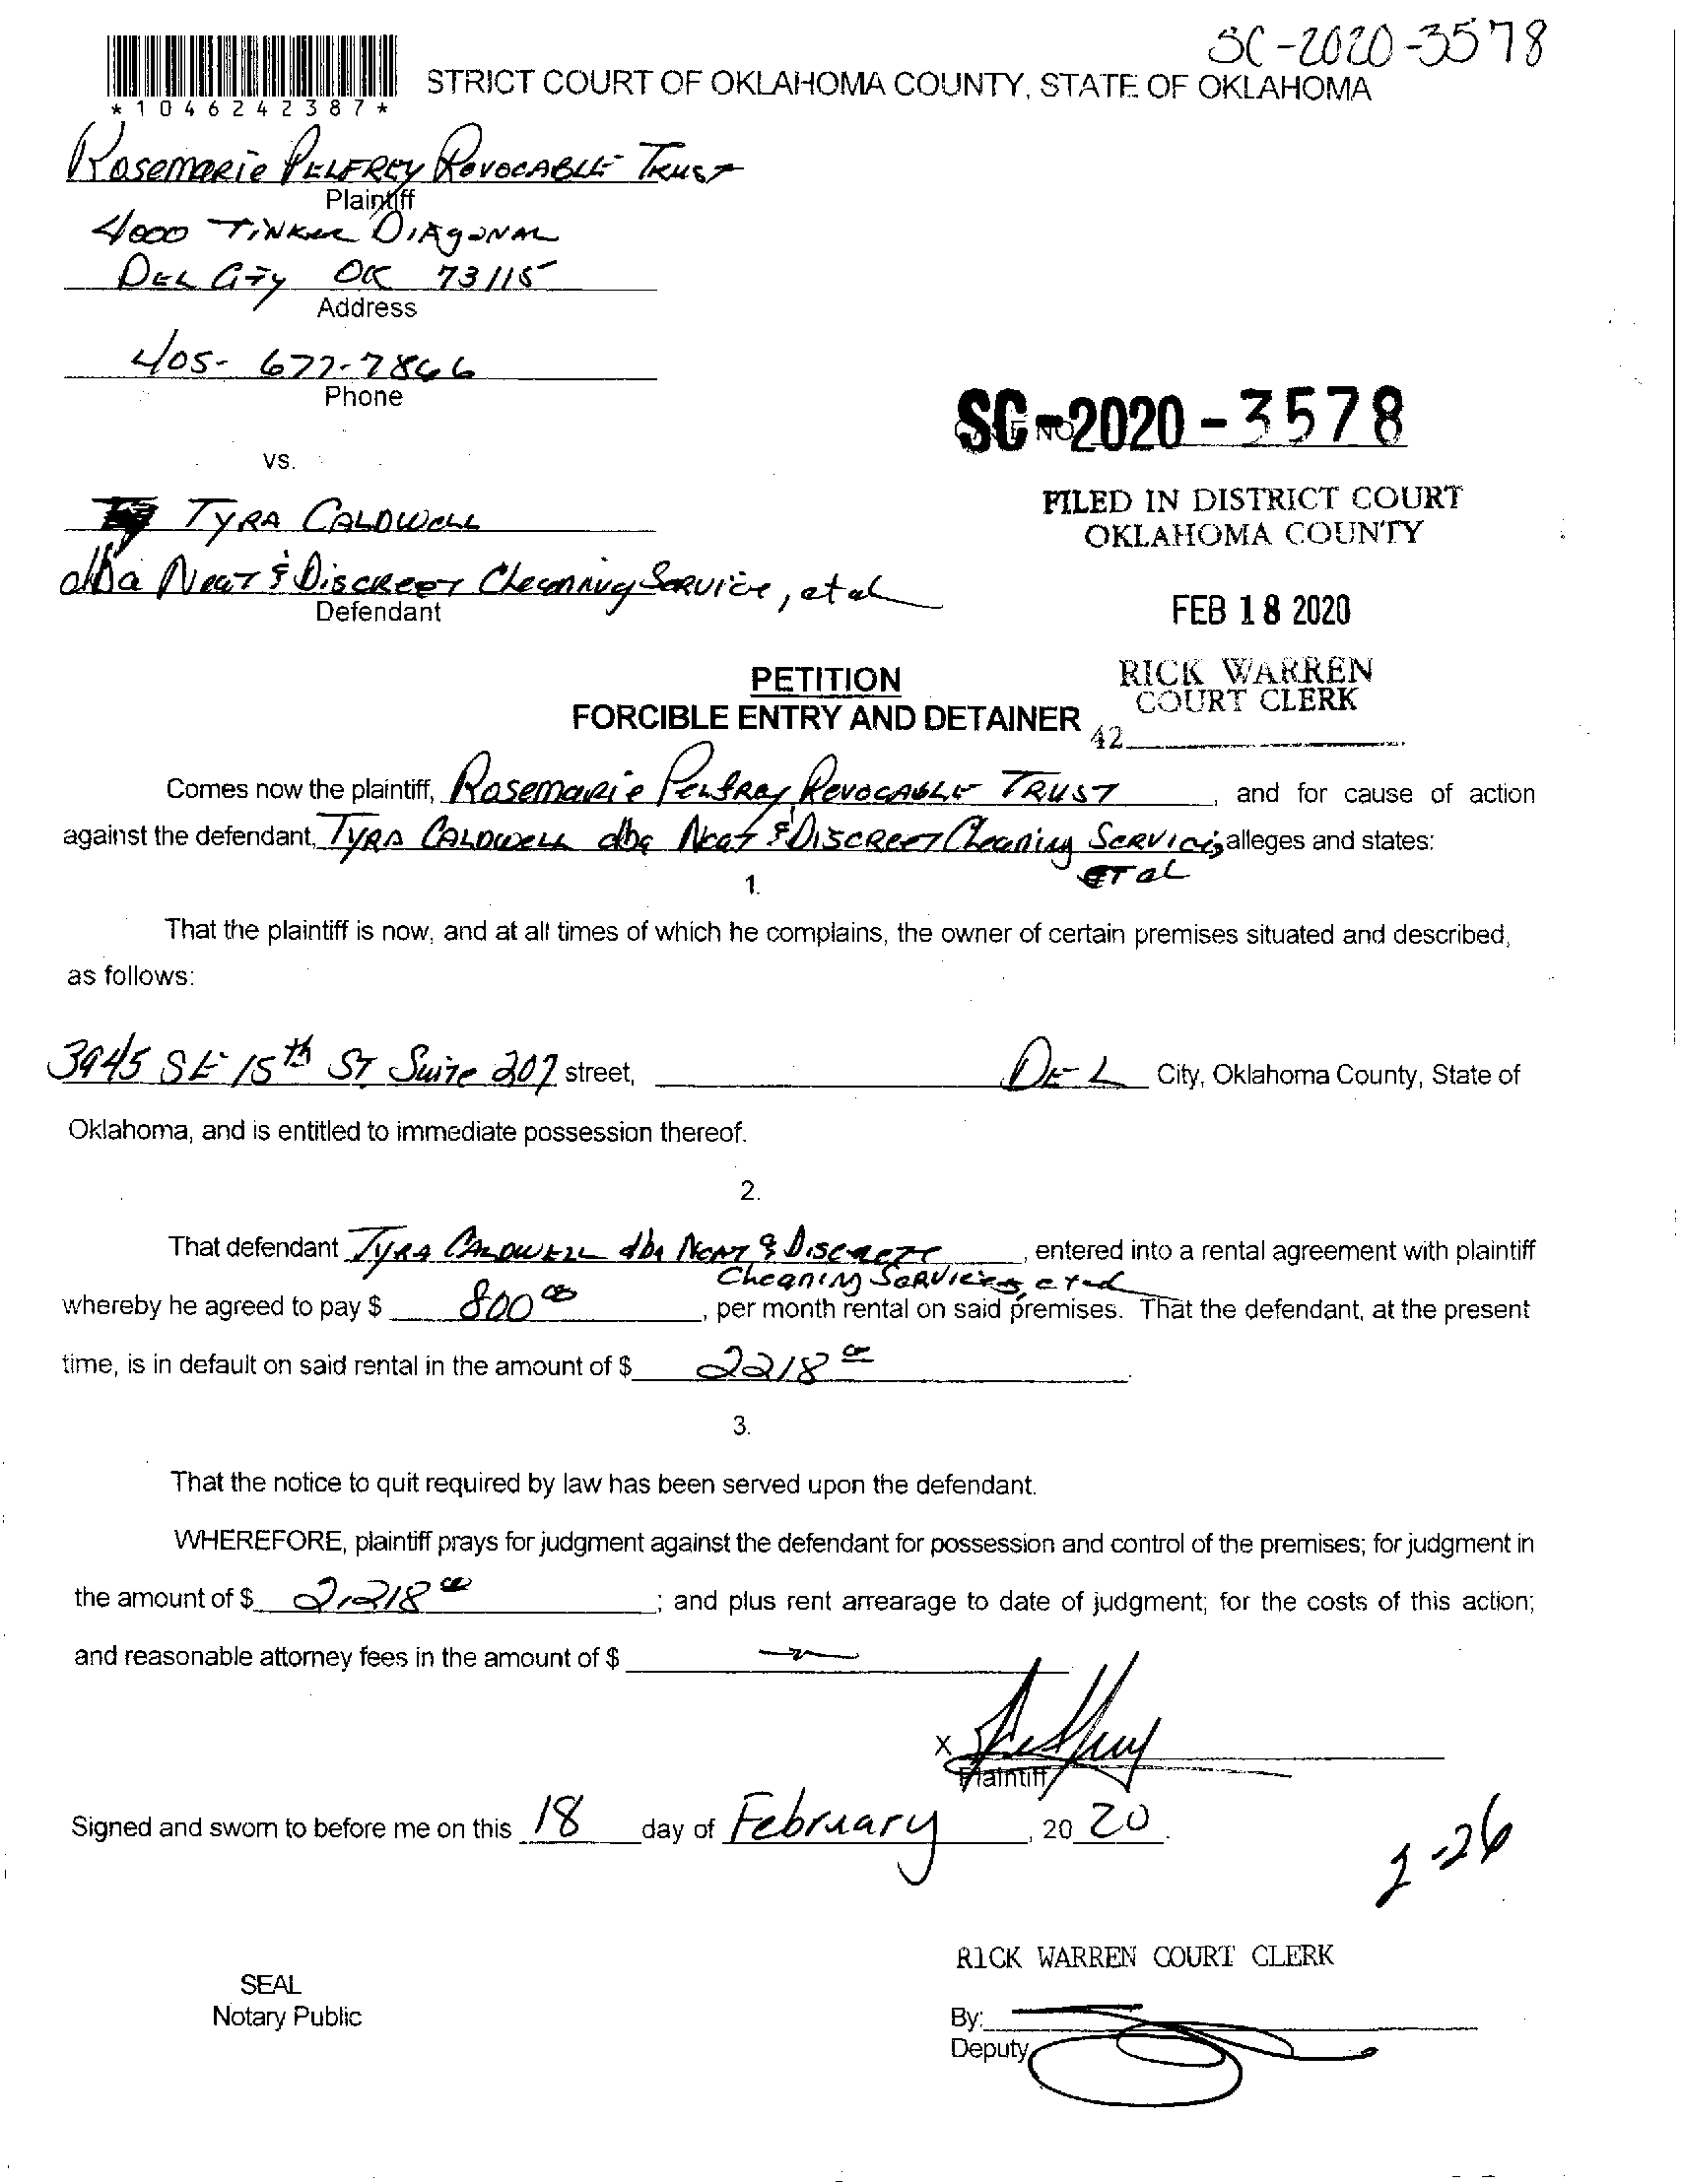 SC-2020-3578
STRICT COURT OF OKLAHOMA COUNTY, STATE OF OKLAHOMA
*1046242387*
Rosemarie PELFREY REVOCABLE TRUST
Plaintiff
4000 TINKER DIAGONAL
DEL CITY OK 73115
Address
405-677-7866
Phone
SC-2020-3578
vs.
TYRA CALDWELL
dba NEAT & DISCREET Cleaning Service, et al
Defendant
FILED IN DISTRICT COURT
OKLAHOMA COUNTY
FEB 18 2020
RICK WARREN
COURT CLERK
42
PETITION
FORCIBLE ENTRY AND DETAINER
Comes now the plaintiff, Rosemarie Pelfrey REVOCABLE TRUST, and for cause of action
against the defendant, TYRA CALDWELL dba Neat & DISCREET Cleaning SERVICES alleges and states:
ET AL
1.
That the plaintiff is now, and at all times of which he complains, the owner of certain premises situated and described,
as follows:
3945 SE 15th ST Suite 207 street, DEL City, Oklahoma County, State of
Oklahoma, and is entitled to immediate possession thereof.
2.
That defendant TYRA CALDWELL dba NEAT & DISCRETE, entered into a rental agreement with plaintiff
Cleaning SERVICES, et al
whereby he agreed to pay $ 800 00, per month rental on said premises. That the defendant, at the present
time, is in default on said rental in the amount of $ 2218 00.
3.
That the notice to quit required by law has been served upon the defendant.
WHEREFORE, plaintiff prays for judgment against the defendant for possession and control of the premises; for judgment in
the amount of $ 2,218 00; and plus rent arrearage to date of judgment; for the costs of this action;
and reasonable attorney fees in the amount of $
X
Plaintiff
Signed and sworn to before me on this 18 day of February, 20 20.
2-26
RICK WARREN COURT CLERK
SEAL
Notary Public
By:
Deputy